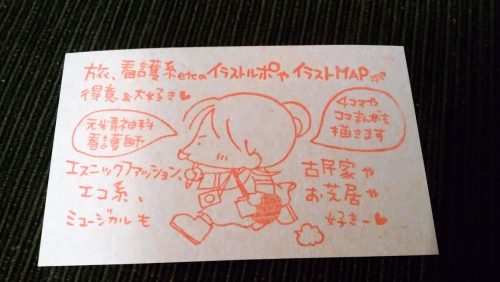 旅、看護系etcのイラストルポやイラストMAPが
得意&大好き♥
元精神科
看護師
4コマや
コマまんがも
描きます
エスニックファッション、
エコ系、
ミュージカルも
古民家や
お芝居
好きー♥